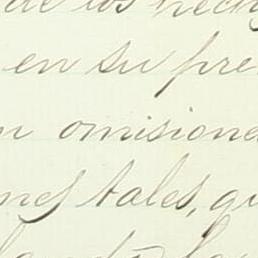 de los hech
en su pre
n omisione
nes tales, qu